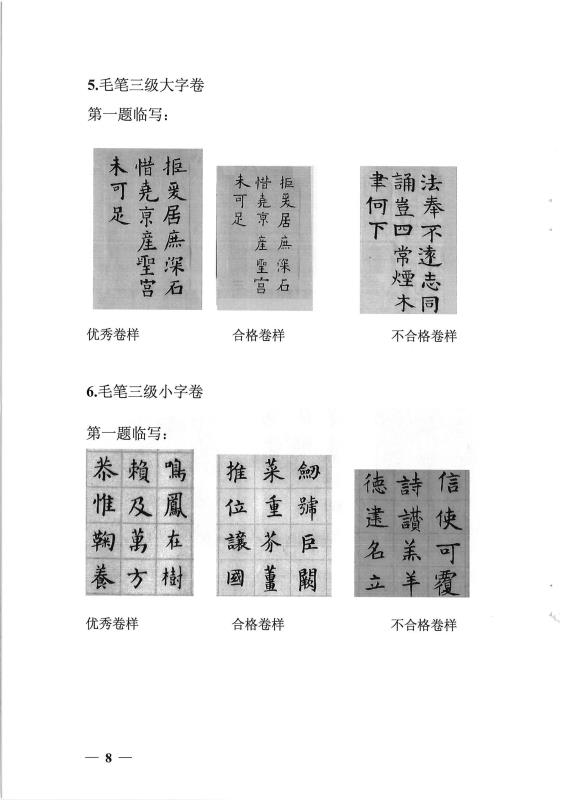 5.毛笔三级大字卷
第一题临写：
拒爰居庶深石
惜堯京産聖宫
未可足
拒爰居庶深石
惜堯京産聖宫
未可足
法奉不遠志同
誦豈四常煙木
聿何下
优秀卷样
合格卷样
不合格卷样
6.毛笔三级小字卷
第一题临写：
鳴鳳在樹
賴及萬方
恭惟鞠養
劒號臣闕
菜重芥薑
推位讓國
信使可覆
詩讃羔羊
德建名立
优秀卷样
合格卷样
不合格卷样
— 8 —